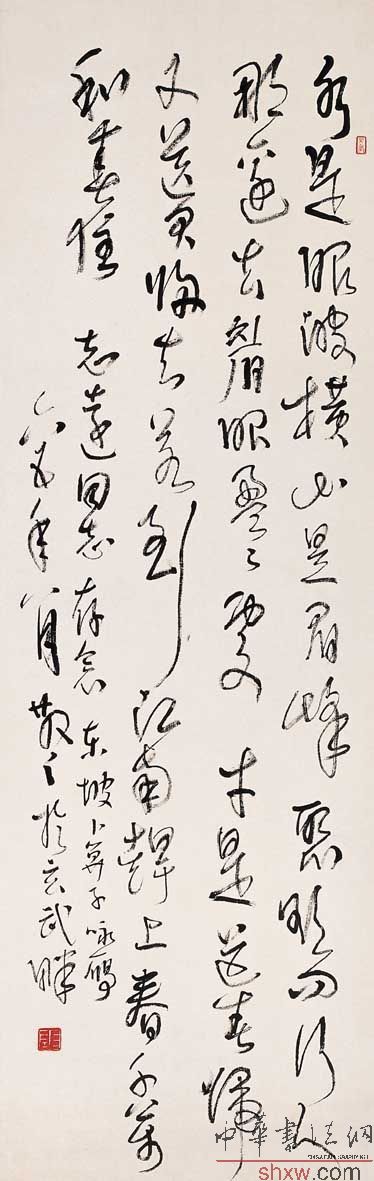 水是眼波横山是眉峰聚欲问行人
那边去眉眼盈盈处才是送春归
又送君归去若到江南赶上春千万
和春住
志远同志存念东坡卜算子咏雁
六五年八月散之于玄武畔
中華書法網
shxw.com